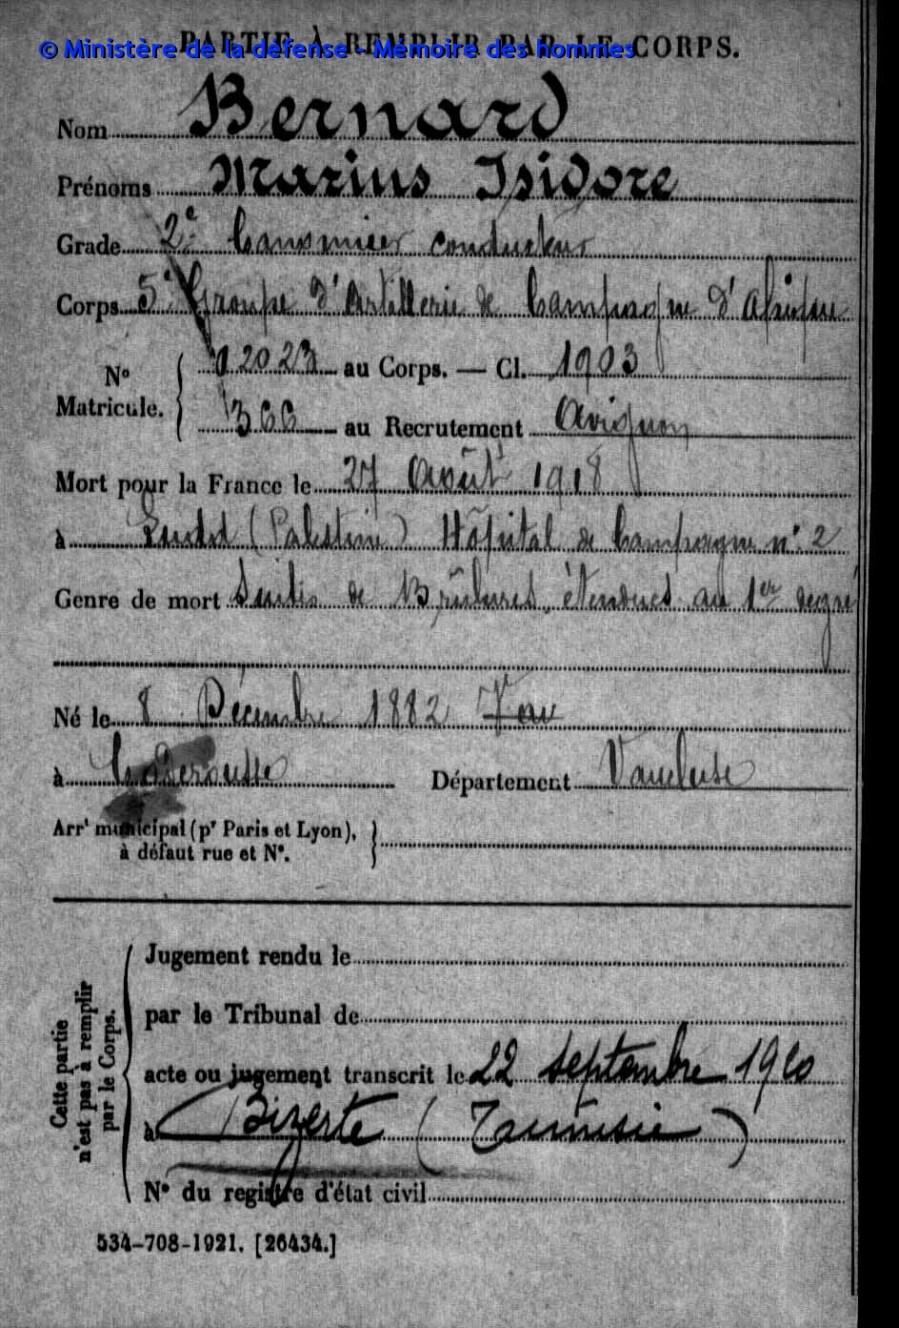 PARTIE À REMPLIR PAR LE CORPS.
© Ministère de la défense - Mémoire des hommes
Nom Bernard
Prénoms Marius Isidore
Grade 2e Canonnier conducteur
Corps 5e Groupe d'Artillerie de Campagne d'Afrique
No Matricule. { 02023 au Corps. — Cl. 1903
366 au Recrutement Avignon
Mort pour la France le 27 Août 1918
à Ludd (Palestine) Hôpital de Campagne n° 2
Genre de mort Suites de Brûlures étendues au 1er degré
Né le 8 Décembre 1882 Vau
à Département Vaucluse
Arrt municipal (pr Paris et Lyon),
à défaut rue et N°.
Cette partie
n'est pas à remplir
par le Corps.
Jugement rendu le
par le Tribunal de
acte ou jugement transcrit le 22 septembre 1920
à Bizerte (Tunisie)
N° du registre d'état civil
534-708-1921. [26434.]